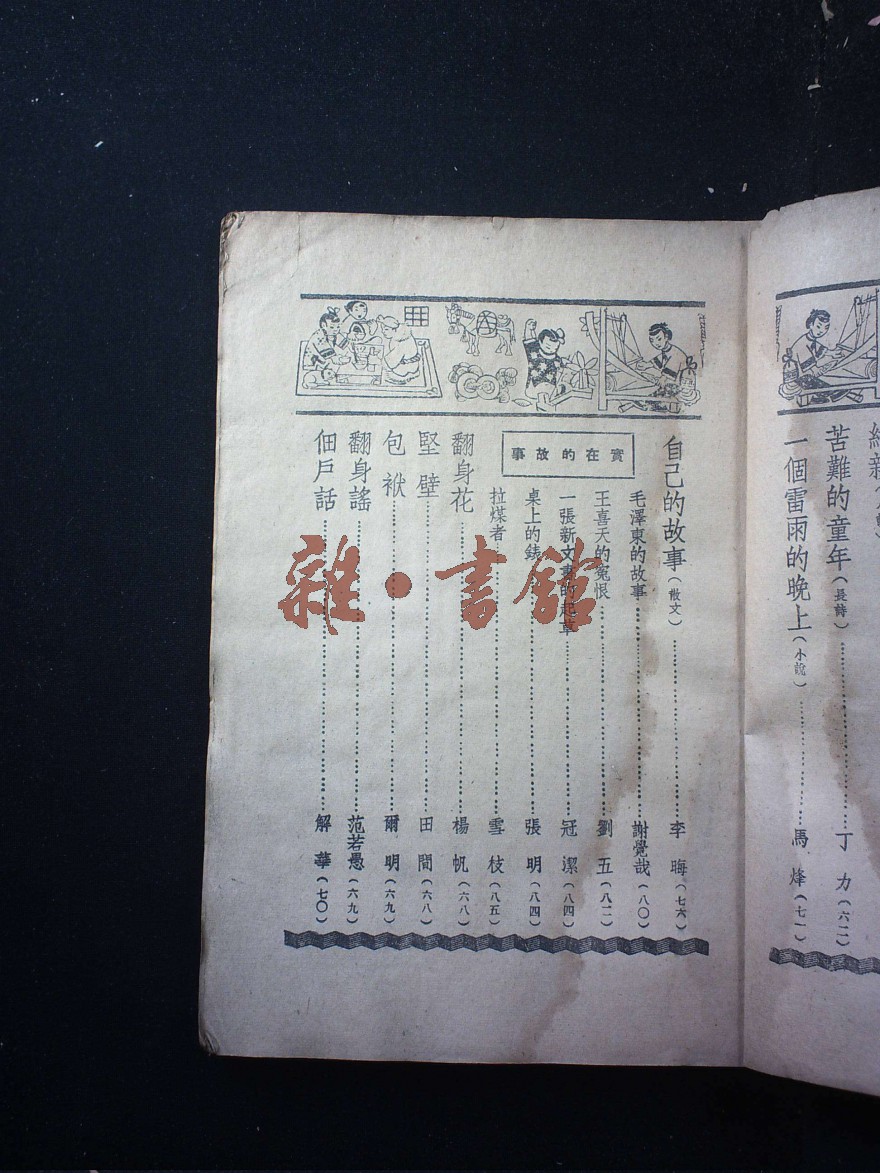 苦難的童年(長詩)……丁力(六二)
一個雷雨的晚上(小說)……馬烽(七一)
自己的故事(散文)……李晦(七六)
實在的故事
毛澤東的故事……謝覺哉(八〇)
王喜天的冤恨……劉五(八二)
一張新文書的起草……冠潔(八四)
桌上的錶……張明(八四)
拉煤者……雪枝(八五)
翻身花……楊帆(六八)
堅壁……田間(六八)
包袱……爾明(六九)
翻身謠……范若愚(六九)
佃戶話……解華(七〇)
雜·書館